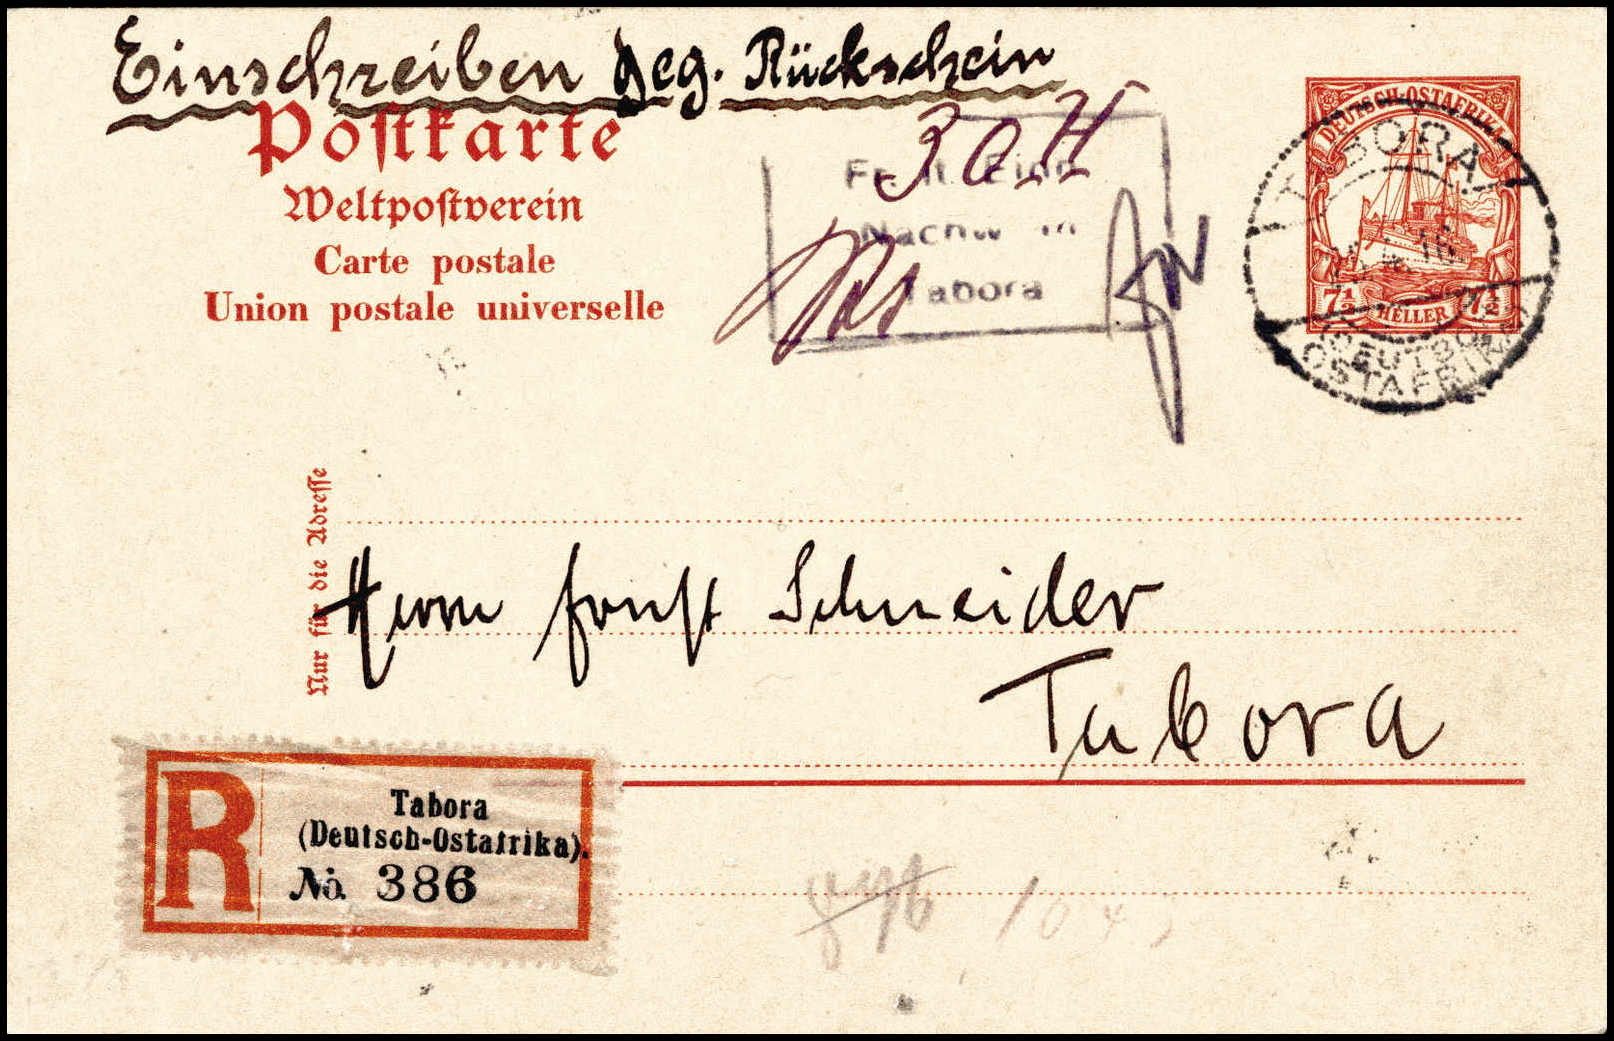 Einschreiben geg. Rückschein
Postkarte
Weltpostverein
Carte postale
Union postale universelle
30 H
Nachw
Tabora
DEUTSCH-OSTAFRIKA
7½ HELLER 7½
TABORA
16
DEUTSCH
OSTAFRIKA
Nur für die Adresse
Herrn Ernst Schneider
Tabora
R
Tabora
(Deutsch-Ostafrika).
No. 386